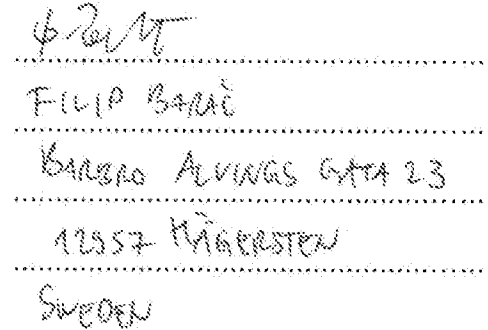 FILIP BARAČ
BARBRO ALVINGS GATA 23
12957 HÄGERSTEN
SWEDEN